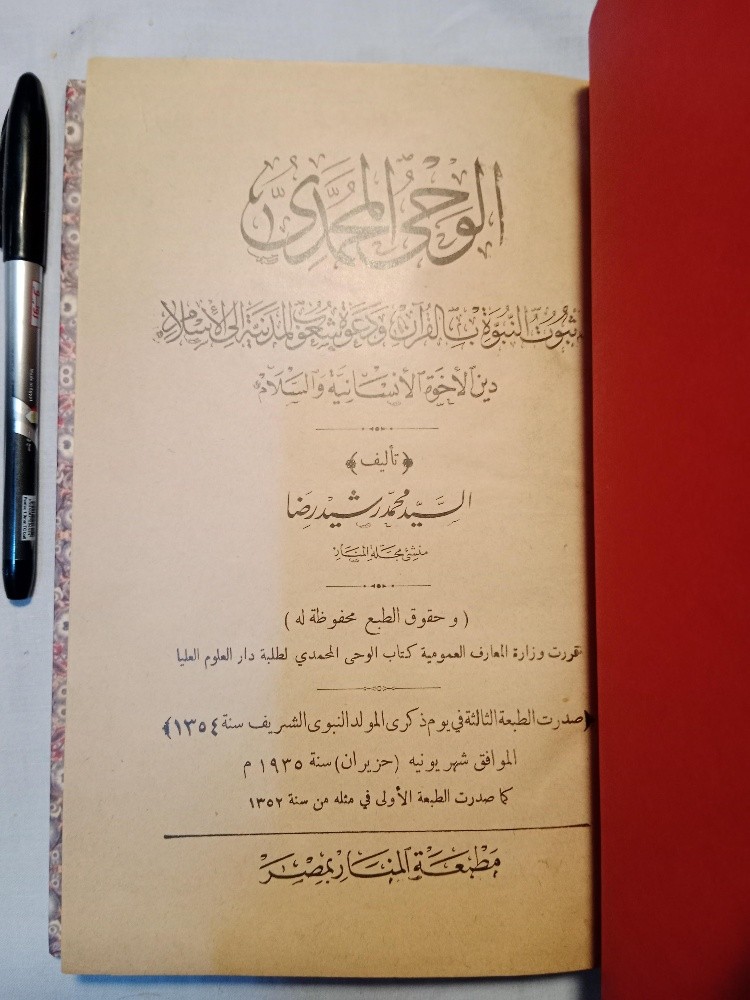 الوَحْىُ المُحَمَّدِىُّ
ثُبُوتُ النُّبُوَّةِ بِالقُرآنِ، وَدَعْوَةُ شُعُوبِ المَدَنِيَّةِ إِلَى الإِسْلَامِ
دِينِ الأُخُوَّةِ الإِنْسَانِيَّةِ وَالسَّلَامِ
﴿ تأليف ﴾
السَّيِّد محمَّد رشيد رضا
منشئ مجلة المنار
( و حقوق الطبع محفوظة له )
قررت وزارة المعارف العمومية كتاب الوحى المحمدي لطلبة دار العلوم العليا
﴿صدرت الطبعة الثالثة في يوم ذكرى المولد النبوى الشريف سنة ١٣٥٤﴾
الموافق شهر يونيه (حزيران) سنة ١٩٣٥ م
كما صدرت الطبعة الأولى في مثله من سنة ١٣٥٢
مَطْبَعَة المَنَار بمِصْرَ